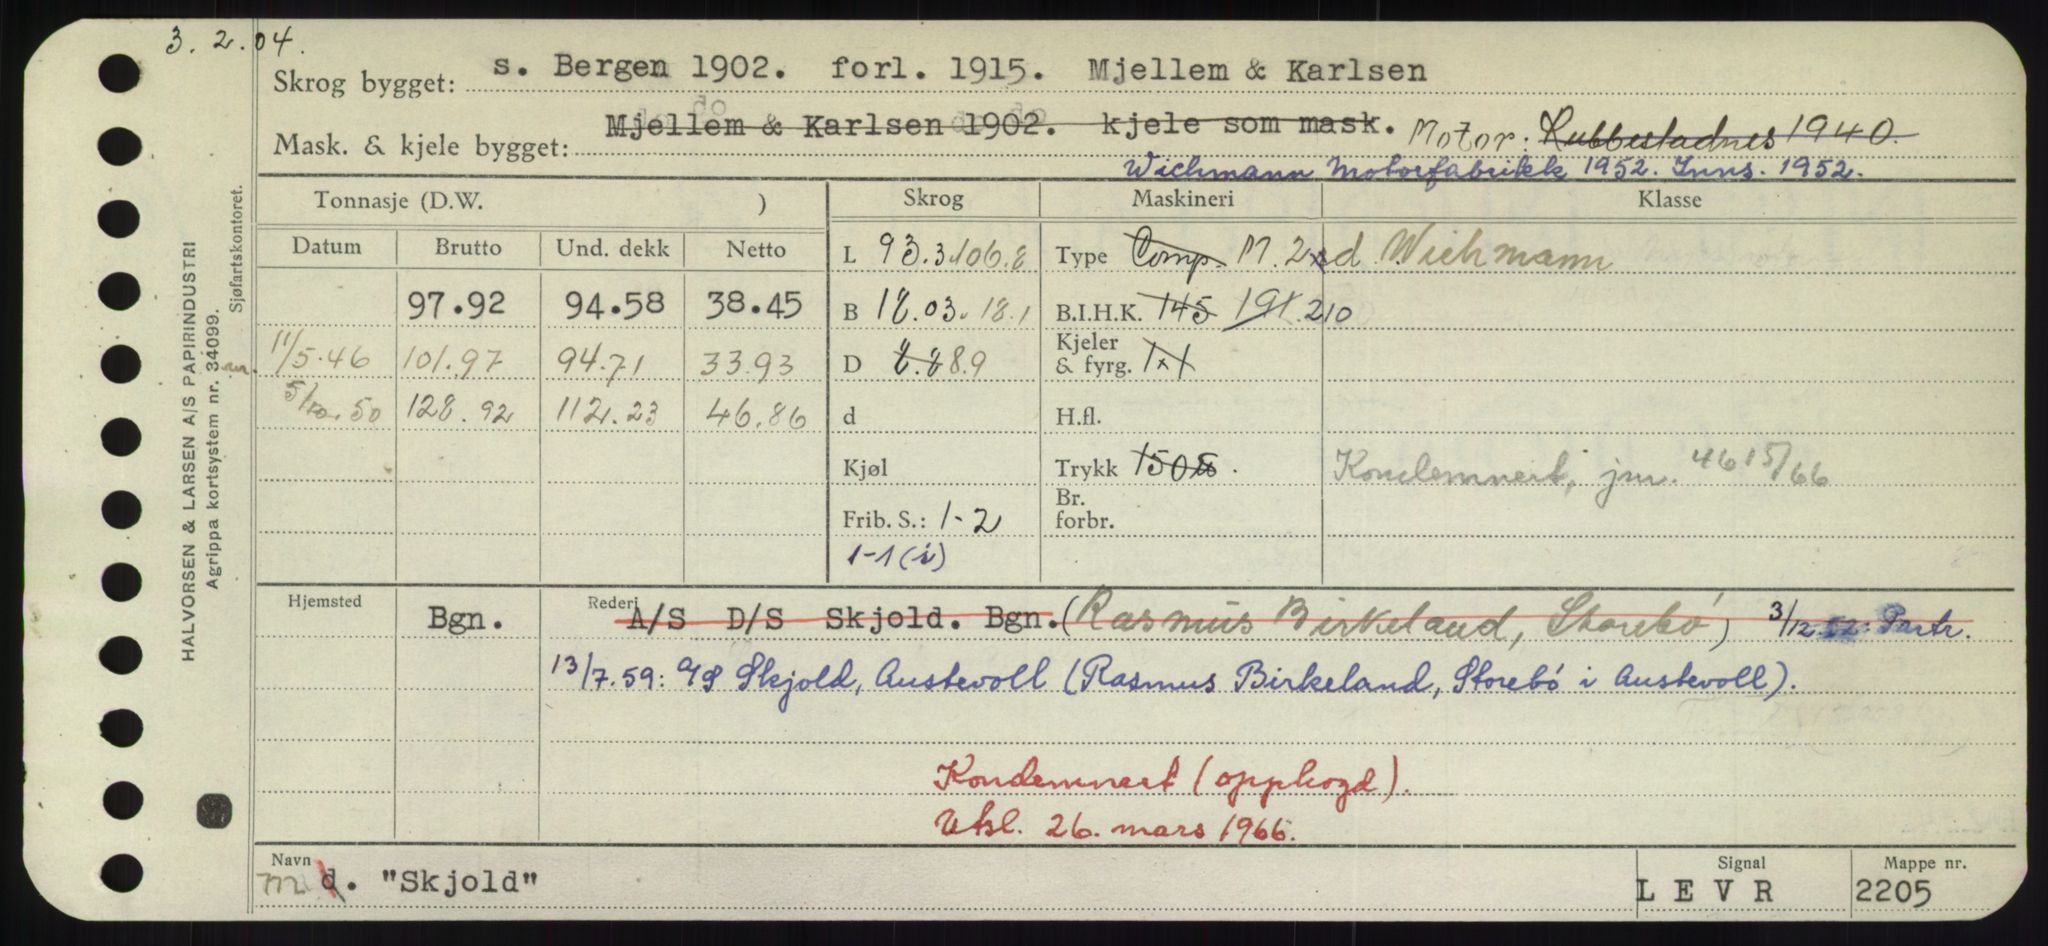 3. 2. 04.
Skrog bygget: s. Bergen 1902. forl. 1915. Mjellem & Karlsen
Mask. & kjele bygget: Mjellem & Karlsen 1902. kjele som mask. Motor: Rubbestadnes 1940.
Wichmann Motorfabrikk 1952. Inns. 1952.
Tonnasje (D.W. ) Skrog Maskineri Klasse
Datum Brutto Und. dekk Netto L 93.3 106.8 Type Comp. M. 2 d Wichmann
97.92 94.58 38.45 B 18.03. 18.1 B.I.H.K. 145 191. 210
11/5.46 101.97 94.71 33.93 D 8.8 8.9 Kjeler & fyrg. 1x1
5/10.50 128.92 112.23 46.86 d H.fl.
Kjøl Trykk 150 Kondemnert, jnr. 4615/66
Frib. S.: 1-2 Br. forbr.
1-1 (i)
Hjemsted Bgn. Rederi A/S D/S Skjold. Bgn. (Rasmus Birkeland, Storebø) 3/12.52: Partr.
13/7.59: A/S Skjold, Austevoll (Rasmus Birkeland, Storebø i Austevoll).
Kondemnert (opphogd).
Utsl. 26. mars 1966.
Navn m d. "Skjold" Signal L E V R Mappe nr. 2205
HALVORSEN & LARSEN A/S PAPIRINDUSTRI
Agrippa kortsystem nr. 34099.
Sjøfartskontoret.